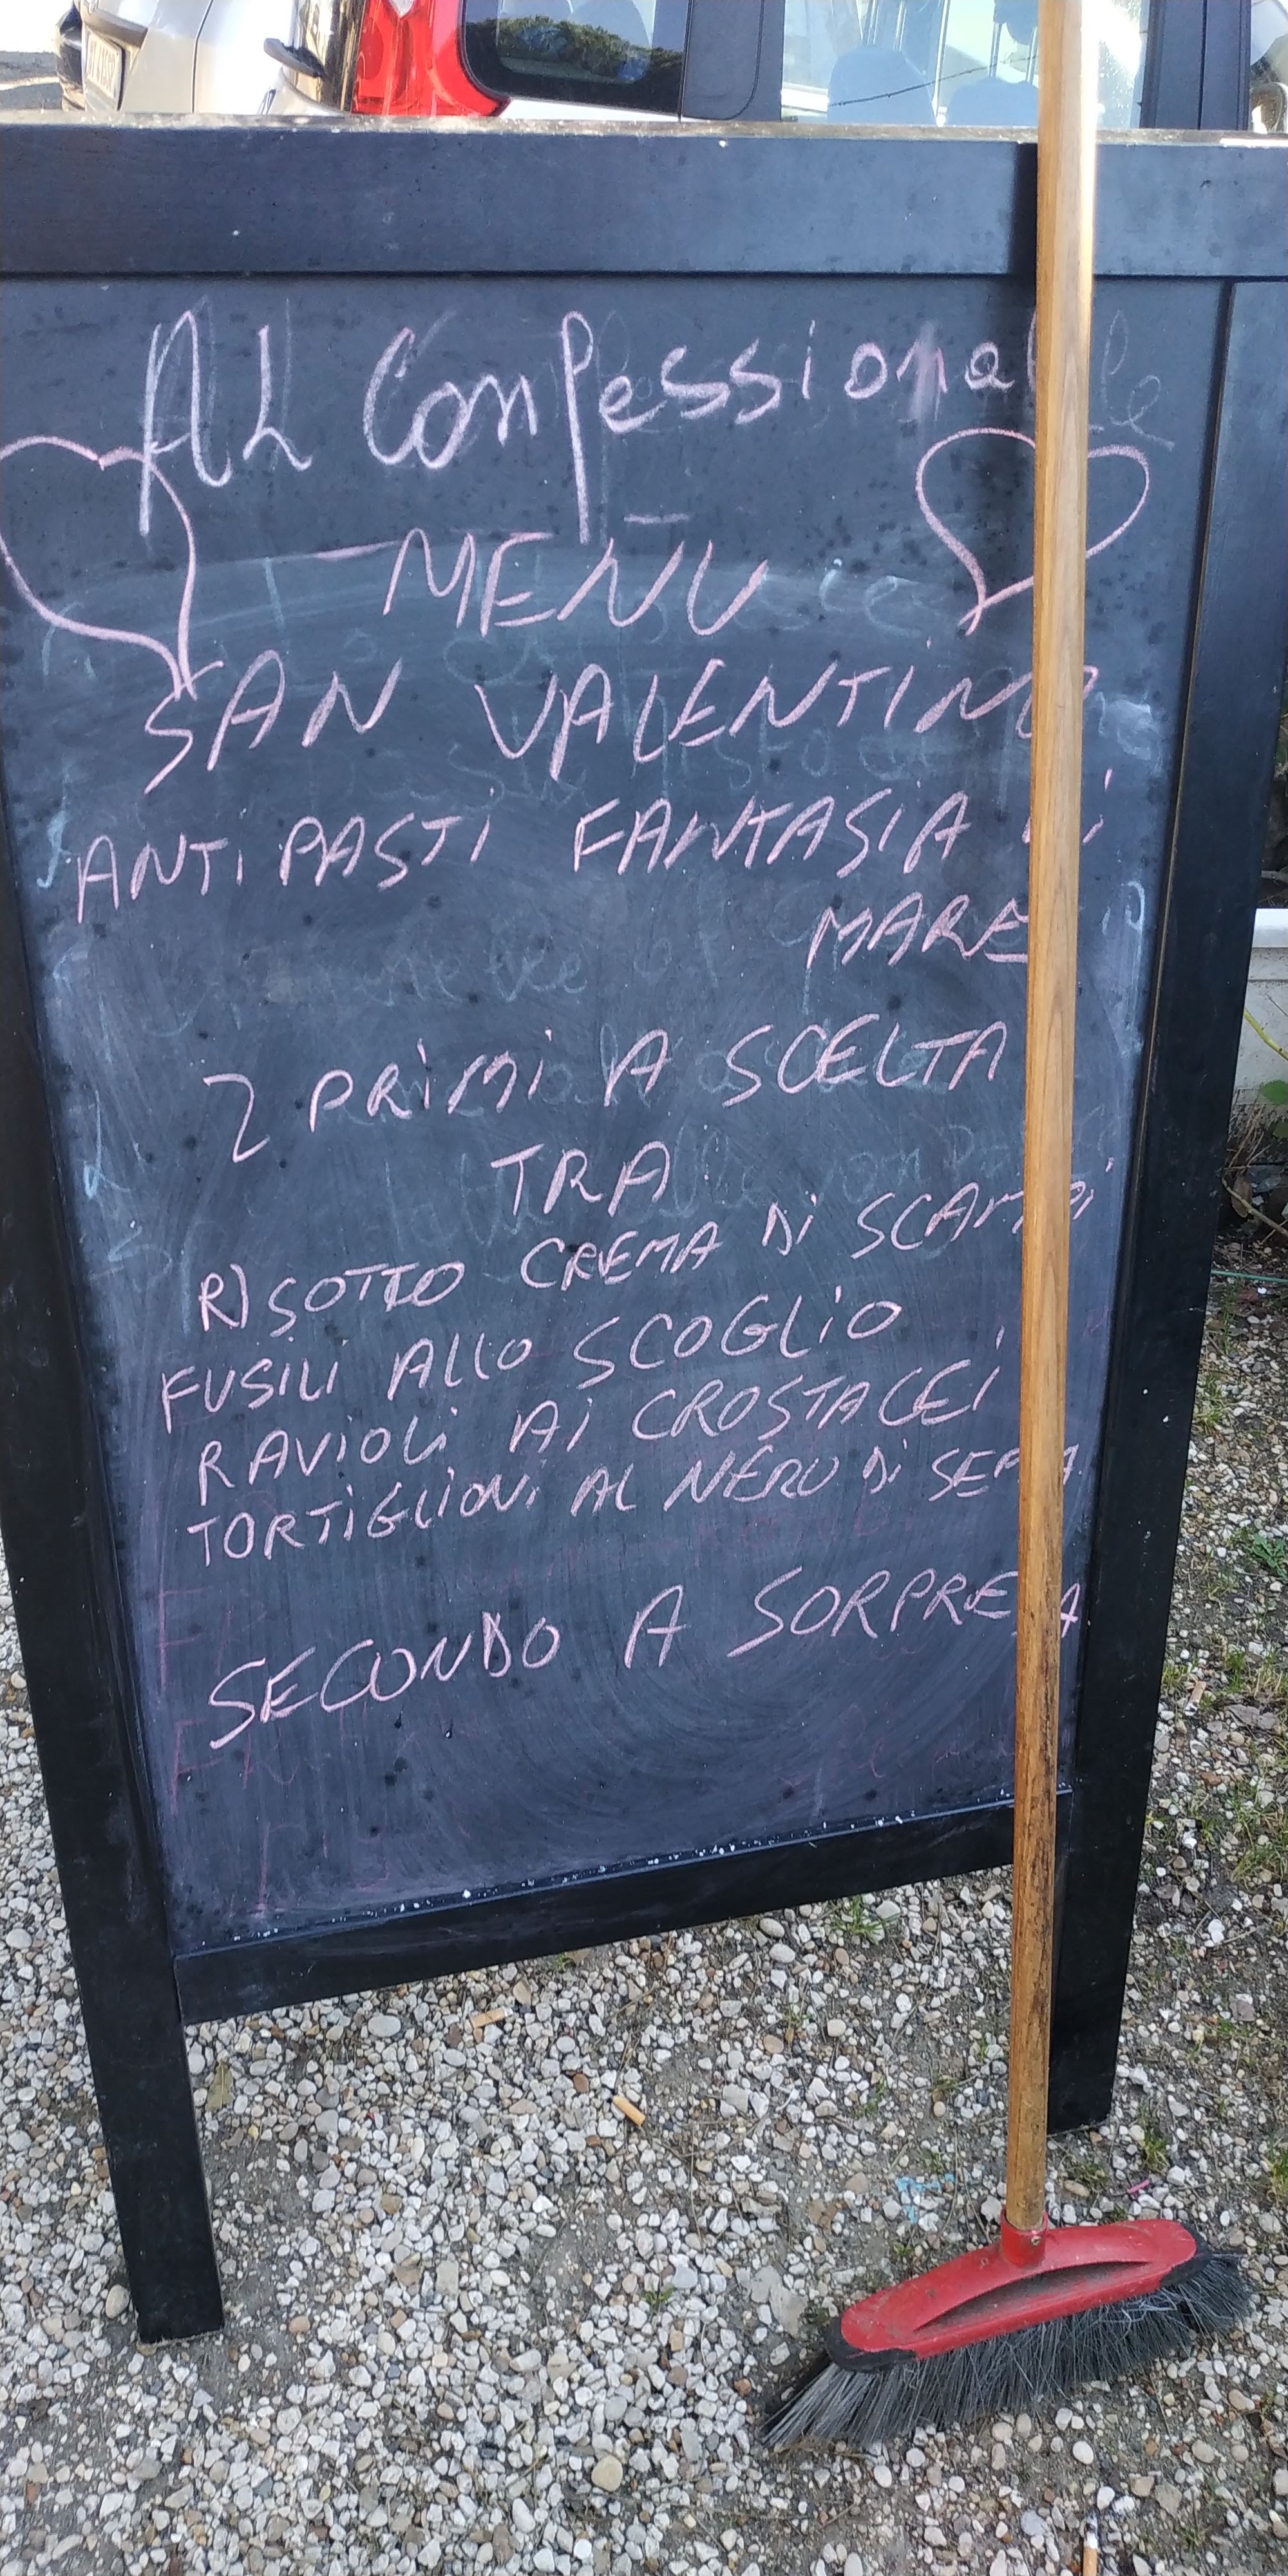 AL Confessionale
MENU
SAN VALENTINO
ANTIPASTI FANTASIA Di
MARE
2 PRiMi A SCELTA
TRA
RISOTTO CREMA Di SCAMPi
FUSILI ALLO SCOGLiO
RAViOLi Ai CROSTACEI
TORTiGLiONi AL NERO Di SEPIA
SECONDO A SORPRESA